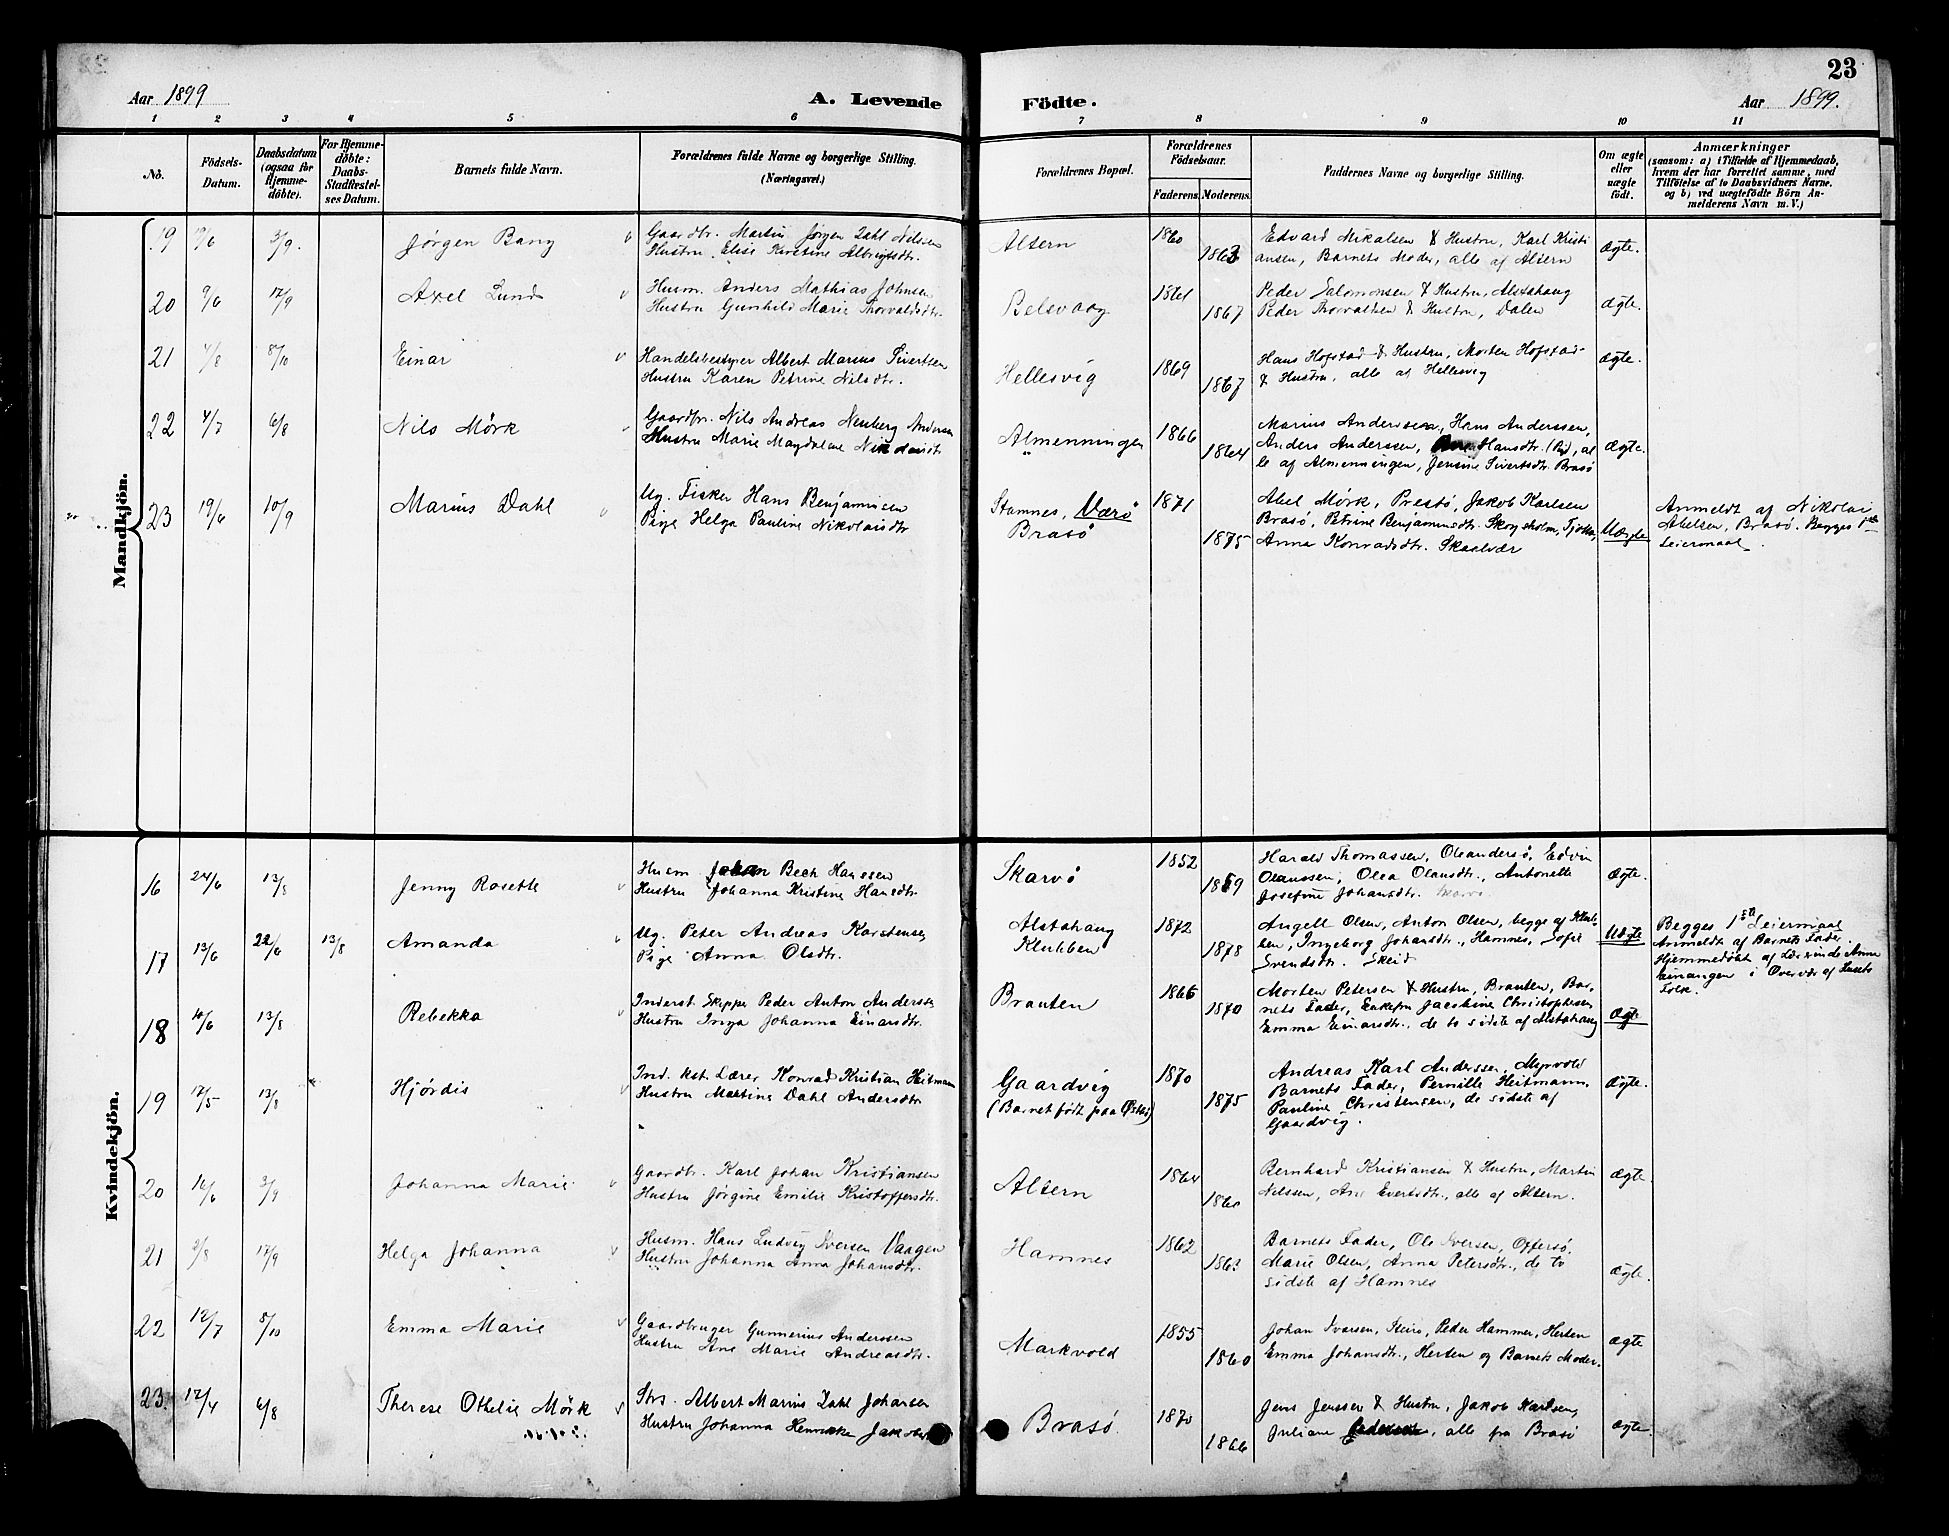 23
Aar 1899
A. Levende
Födte.
Aar 1899.
1 2 3 4 5 6 7 8 9 10 11
No.
Födsels-Datum.
Daabsdatum (ogsaa for Hjemmedöbte).
For Hjemmedöbte: Daabs-Stadfestelses Datum.
Barnets fulde Navn.
Forældrenes fulde Navne og borgerlige Stilling. (Næringsvei.)
Forældrenes Bopæl.
Forældrenes Födselsaar.
Faderens. Moderens.
Faddernes Navne og borgerlige Stilling.
Om ægte eller uægte födt.
Anmærkninger
(saasom: a) i Tilfælde af Hjemmedaab,
hvem der har forrettet samme, med
Tilföielse af to Daabsvidners Navne.
og b) ved uægtefödte Börn An-
melderens Navn m. V.)
Mandkjön.
19 19/6 3/9. Jørgen Bang
Gaardbr. Martin Jørgen Dahl Nilssen
Hustru Elise Kirstine Albrigtsdtr.
Altern 1860 1863
Edvard Mikalsen & Hustru, Karl Kristi
ansen, Barnets Moder, alle af Altern
Ægte.
20 9/6 17/9 Axel Lund
Husm. Anders Mathias Johnsen
Hustru Gunhild Marie Thorvaldsdtr.
Belsvaag 1861 1867
Peder Salomonsen & Hustru, Alstahaug
Peder Thorvaldsen & Hustru, Dalen
Ægte.
21 4/8 8/10 Einar
Handelsbestyrer Albert Marius Sivertsen
Hustru Karen Petrine Nilsdtr.
Hellesvig 1869 1867
Hans Hofstad & Hustru, Morten Hofstad
& Hustru, alle af Hellesvig
Ægte.
22 4/7 6/8 Nils Mörk
Gaardbr. Nils Andreas Neuberg Andersen
Hustru Marie Magdalene
Almenningen 1866 1864
Marius Anderssen, Hans Anderssen,
Anders Anderssen, Hansdtr. (Pi), al
le af Almenningen, Jensine Sivertsdtr. Brasö
Ægte.
23 19/6 10/9 Marius Dahl
Ug. Fisker Hans Benjaminsen
Pige Helga Pauline Nikolaisdtr
Stamnes, Værö
Brasö
1871 1875
Abel Mørk, Prestö, Jakob Karlsen
Brasö, Petrine Benjaminsdtr. Skogsholm, Tjötta,
Anna Konradsdtr. Skaalvær
Uægte
Anmeldt af Nikolai
Abelsen, Brasö. Begges 1ste
Leiermaal.
Kvindekjön.
16 24/6 13/8 Jenny Rosette
Husm. Johan Bech Hanssen
Hustru Johanna Kristine Hansdtr
Skarvö 1852 1859
Harald Thomassen, Oleandersö, Edvin
Olaussen, Olea Olausdtr., Antonette
Josefine Johansdtr.
Ægte.
17 13/6 22/6 13/8 Amanda
Ug. Peter Andreas Karstensen
Pige Anna Olsdtr.
Alstahaug
Klubben
1872 1878
Angell Olsen, Anton Olsen, begge af Klub-
ben, Ingeborg Johansdtr., Hamnes, Sofie
Svendsdtr. Skeid
Uægte
Begges 1ste Leiermaal
Anmeldt af Barnets Fader.
Hjemmedöbt af Lærerinde Anna
Einangen i Overvær af Husets
Folk.
18 4/6 13/8 Rebekka
Inderst. Skipper Peder Anton Anderssen
Hustru Inga Johanna Einarsdtr.
Brauten 1866 1870
Morten Petersen & Hustru, Brauten, Bar-
nets Fader, Enkefru Jacobine Christophersen
Emma Einarsdtr., de to sidste af Alstahaug
Ægte
19 17/5 13/8 Hjördis
Ind. kst. Lærer Konrad Kristian Heitmann
Hustru Martine Dahl Andersdtr
Gaardvig
(Barnet født paa
1870 1875
Andreas Karl Anderssen, Myrvold
Barnets Fader, Pernille Heitmann.
Pauline Christensen, de sidste af
Gaardvig.
Ægte.
20 16/6 3/9 Johanna Marie
Gaardbr. Karl Johan Kristiansen
Hustru Jörgine Emilie Kristoffersdtr.
Altern 1864 1860
Bernhard Kristiansen & Hustru, Martin
Nilssen, Ane Evertsdtr., alle af Altern.
Ægte.
21 2/8 17/9 Helga Johanna
Husm. Hans Ludvig Iversen Vaagen
Hustru Johanna Anna Johansdtr.
Hamnes 1862 1863
Barnets Fader, Ole Iversen, Offersö.
Marie Olsen, Anna Petersdtr., de to
sidste af Hamnes
Ægte.
22 12/7 8/10 Emma Marie
Gaardbruger Gunnerius Anderssen
Hustru Ane Marie Andreasdtr.
Markvold 1855 1860
Johan Iversen, Peder Hammer, Herten
Emma Johansdtr., Herten og Barnets Moder.
Ægte
23 12/4 6/8 Therese Othelie Mörk
Strs. Albert Marius Dahl Johansen
Hustru Johanna Henrikke
Brasö. 1870 1866
Jens Jenssen & Hustru, Jakob Karlsen,
Juliane , alle fra Brasö
Ægte.